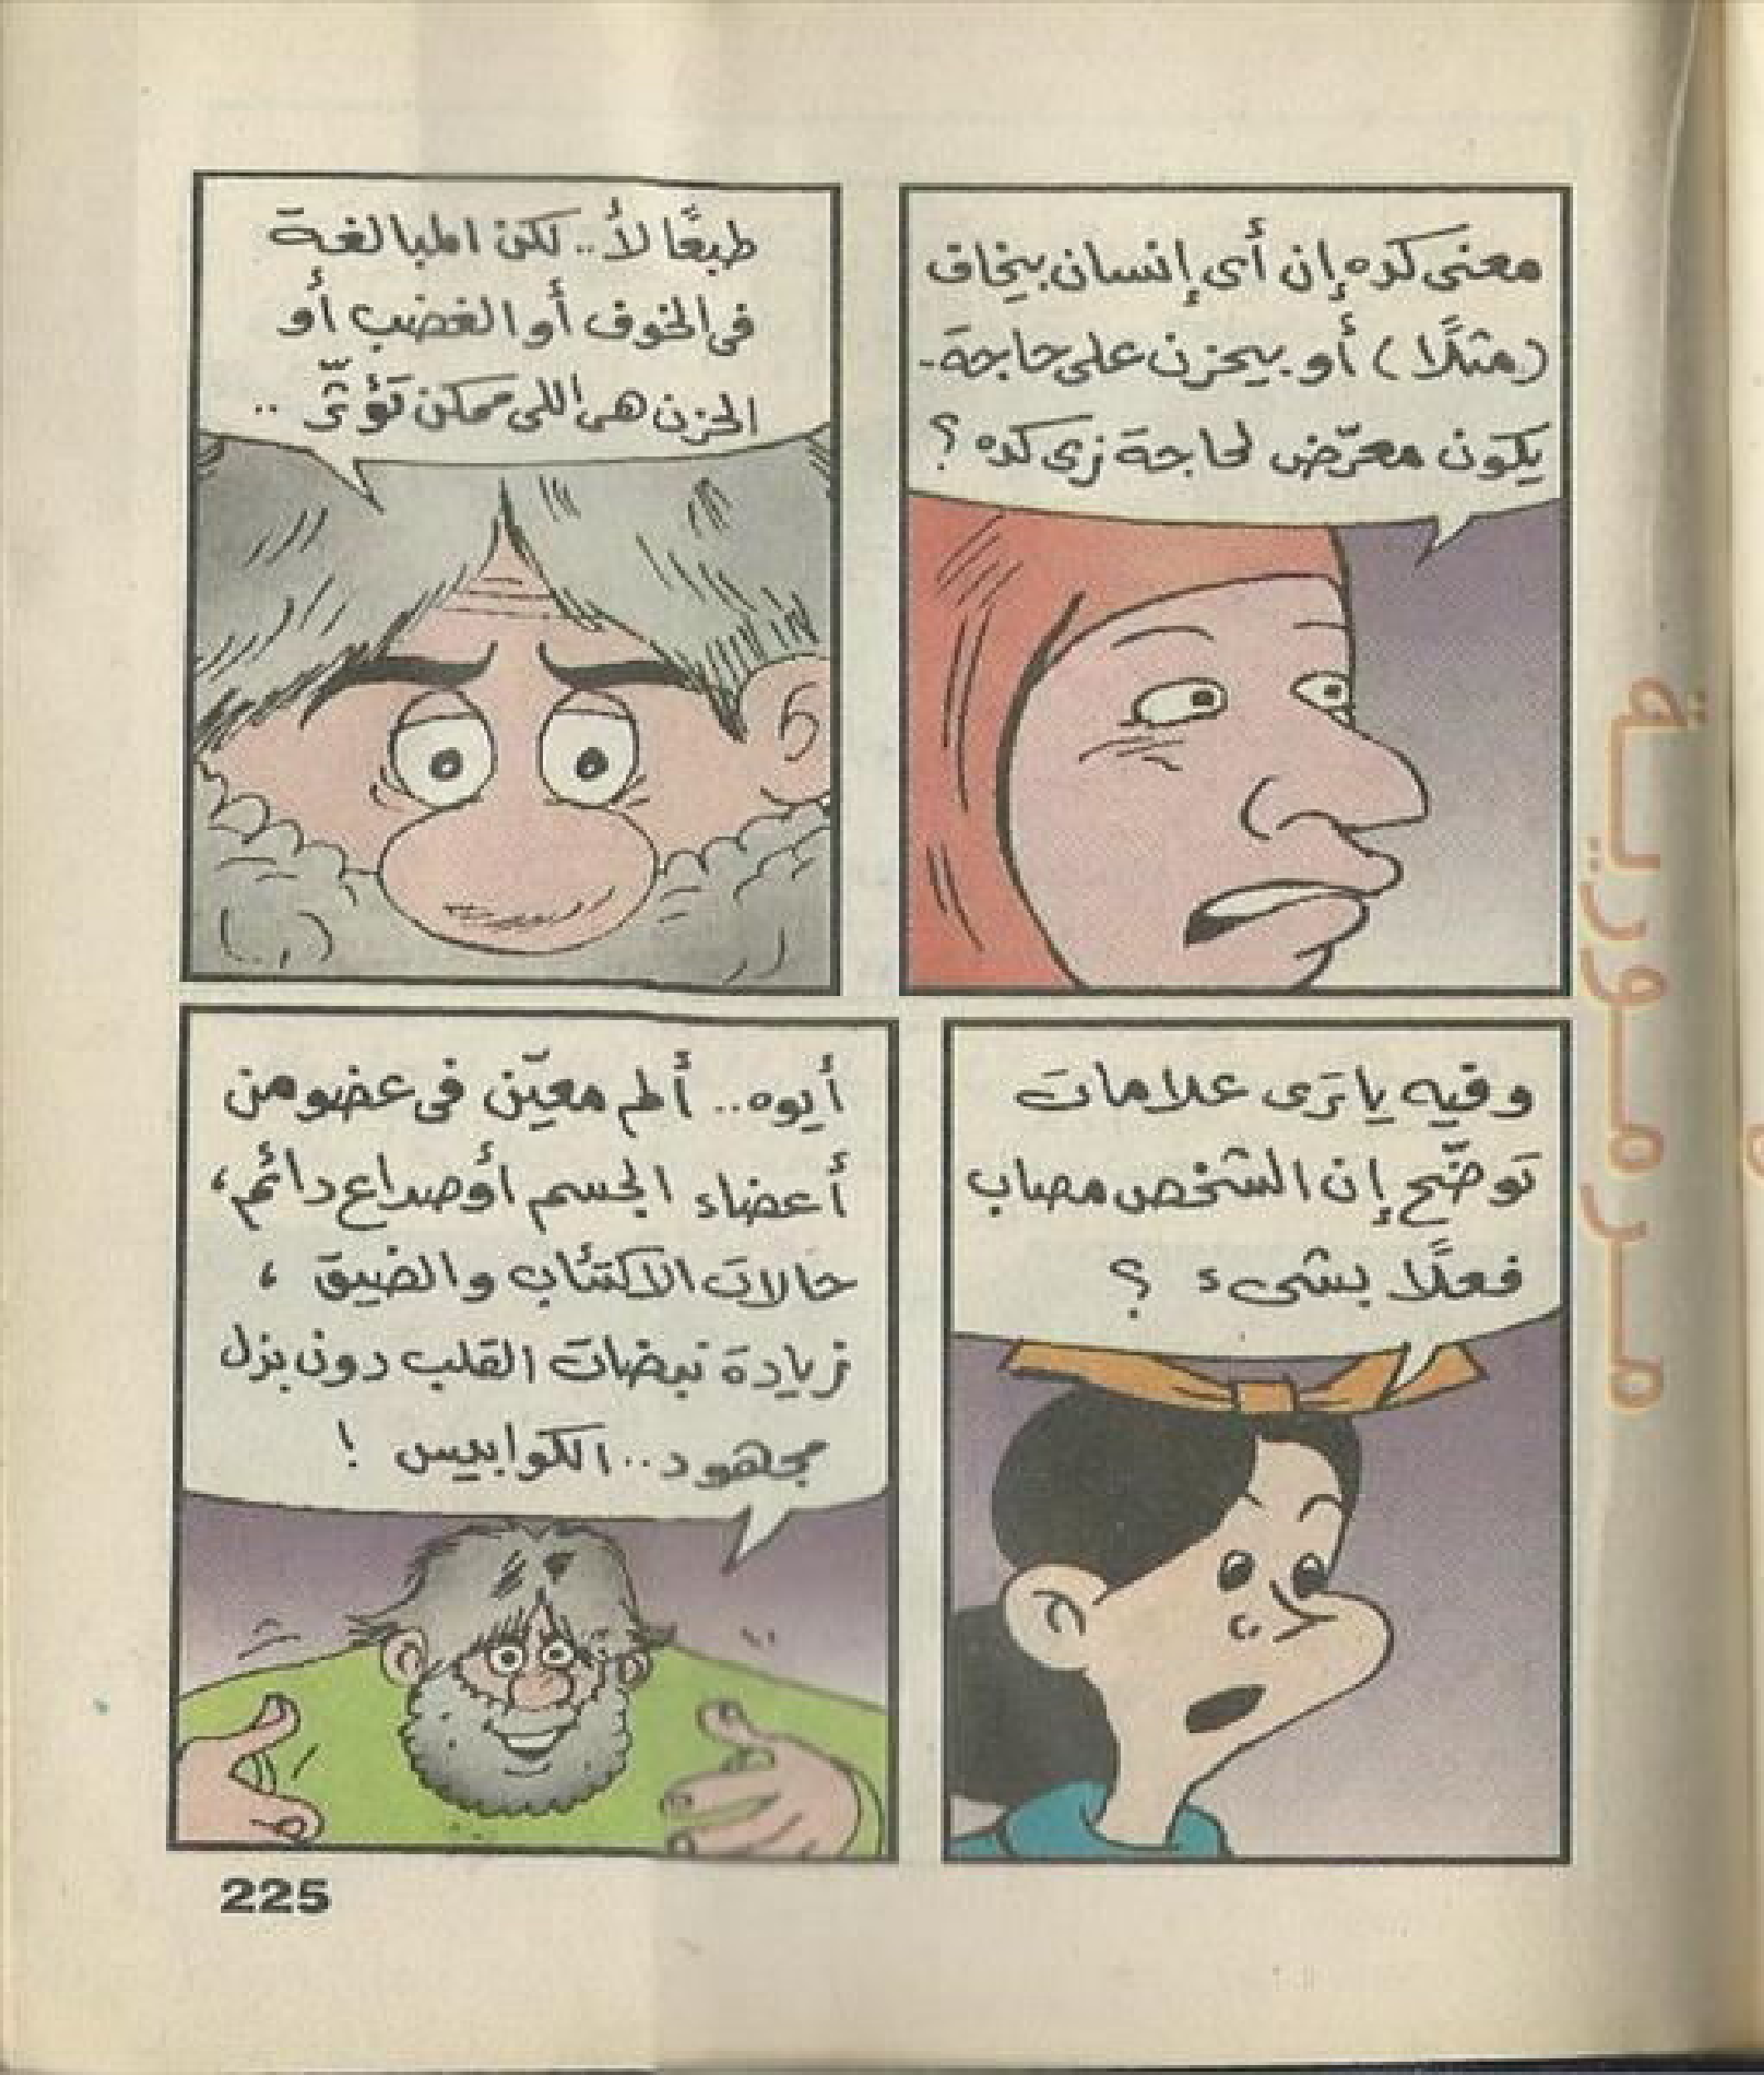 معنى كده إن أى إنسان بيخاف
(مثلًا) أو بيحزن على حاجة-
يكون معرّض لحاجة زى كده؟
طبعًا لأ.. لكن المبالغة
فى الخوف أو الغضب أو
الحزن هى اللى ممكن تؤثّر ..
وفيه ياترى علامات
توضّح إن الشخص مصاب
فعلًا بشىء ؟
أيوه.. ألم معيّن فى عضو من
أعضاء الجسم أو صداع دائم،
حالات الاكتئاب والضيق ،
زيادة نبضات القلب دون بذل
مجهود.. الكوابيس !
مرمورية
225